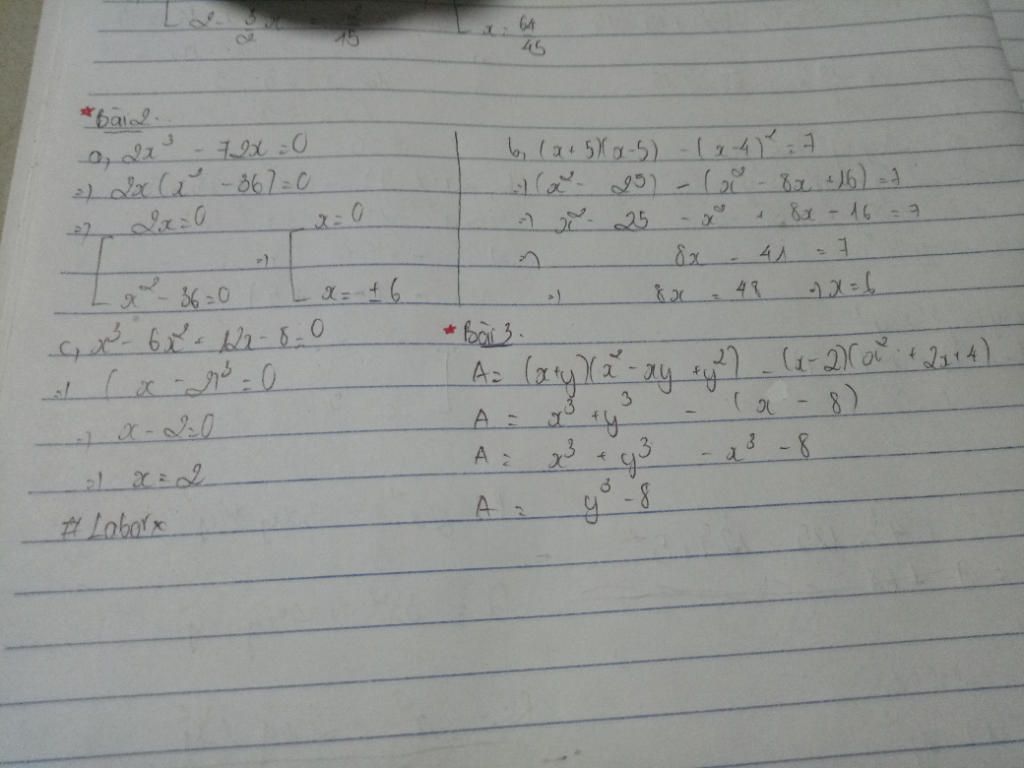 x = 64/45
* Bài 2.
a, 2x³ - 72x = 0
=) 2x(x² - 36) = 0
=) [ 2x = 0 =) [ x = 0
x² - 36 = 0 x = ± 6
b, (x + 5)(x - 5) - (x - 4)² = 7
=) (x² - 25) - (x² - 8x + 16) = 7
=) x² - 25 - x² + 8x - 16 = 7
=) 8x - 41 = 7
=) 8x = 48 =) x = 6
c, x³ - 6x² + 12x - 8 = 0
=) (x - 2)³ = 0
=) x - 2 = 0
=) x = 2
# Laborx
* Bài 3.
A = (x + y)(x² - xy + y²) - (x - 2)(x² + 2x + 4)
A = x³ + y³ - (x - 8)
A = x³ + y³ - x³ - 8
A = y³ - 8